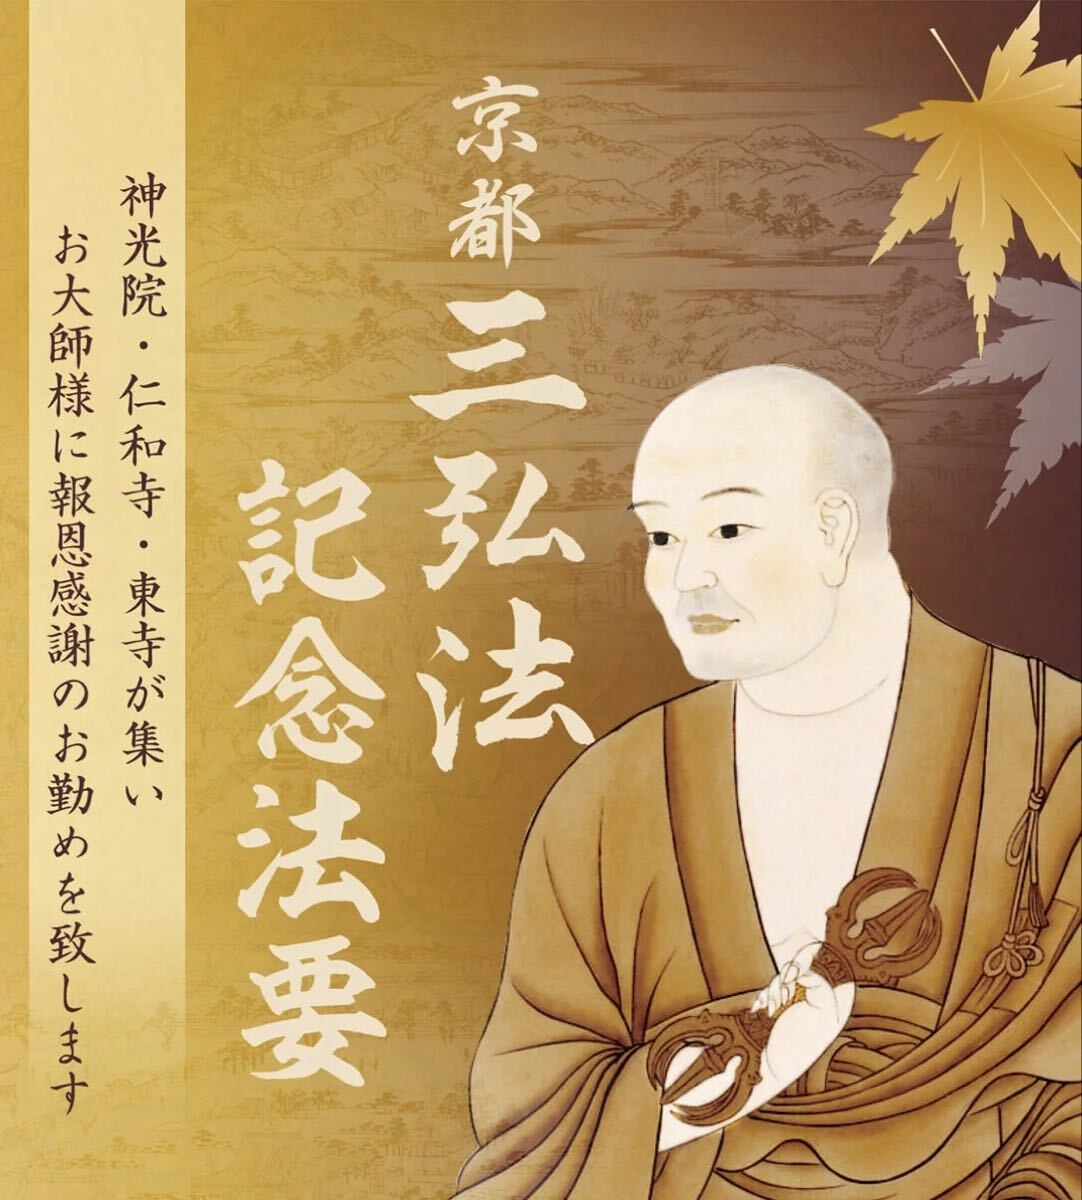 京都
三弘法
記念法要
神光院・仁和寺・東寺が集い
お大師様に報恩感謝のお勤めを致します